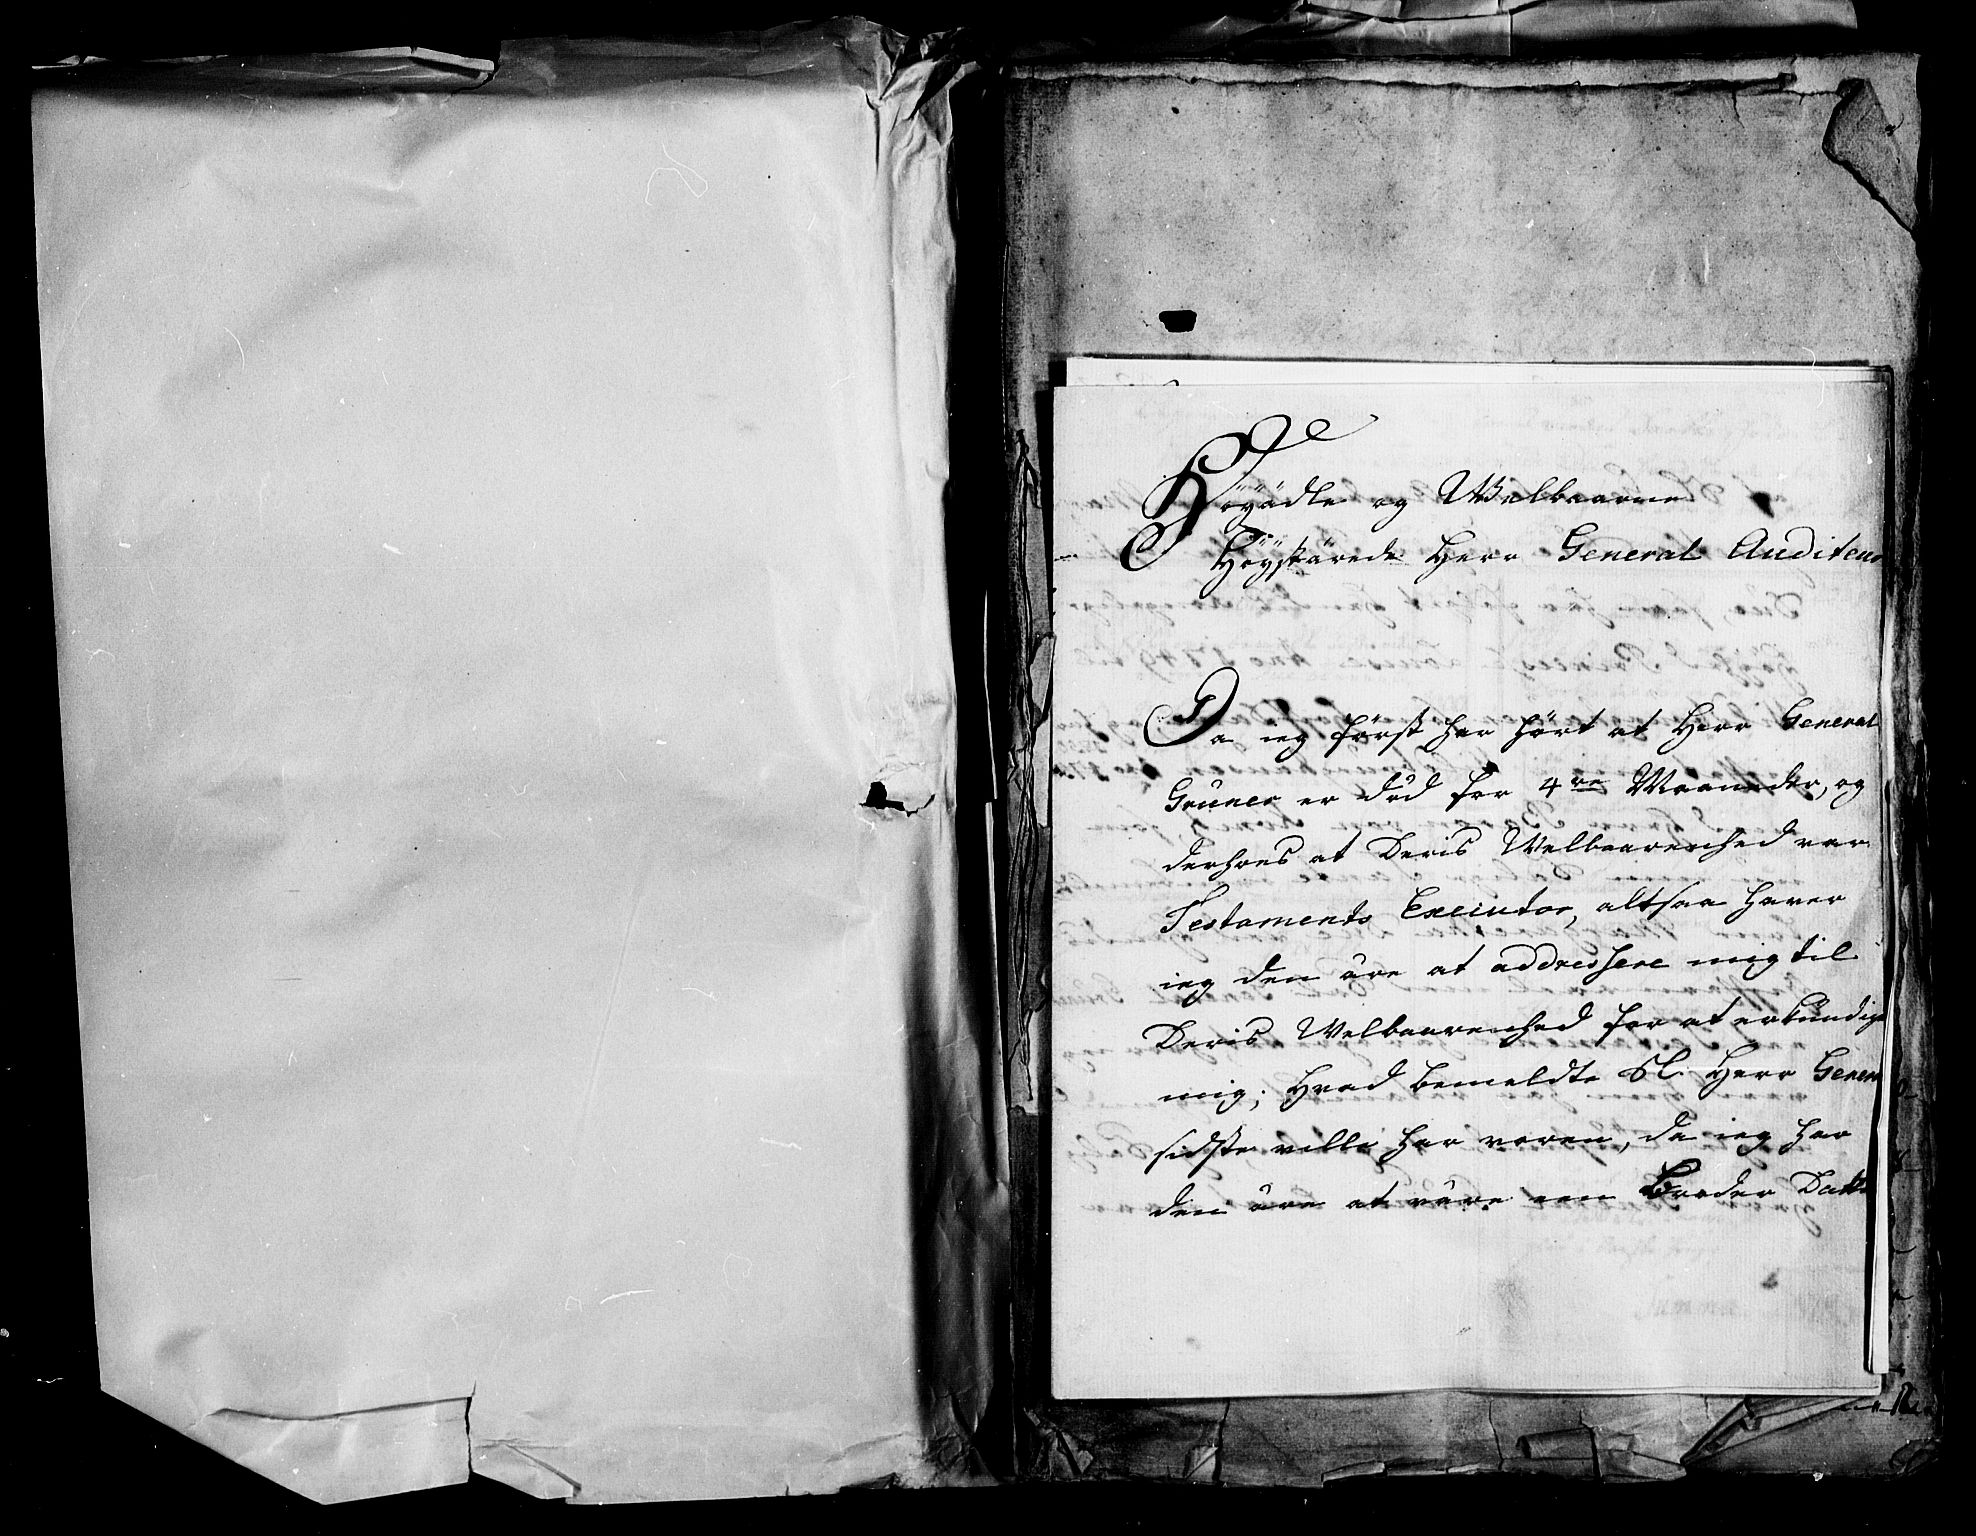 Høyædle og Welbaarne
Høystærede Herr General Auditeur
Da ieg først har hørt at Herr General
Gruner er død for 4re Maaneder, og
derhoes at Deris Welbaarenhed var
Testaments Executor, altsaa haver
ieg den ære at addressere mig til
Deris Welbaarenhed for at erkündige
mig, hvad bemeldte Sl. Herr General
sidste villie har været, da ieg har
den ære at være een Broder Datter